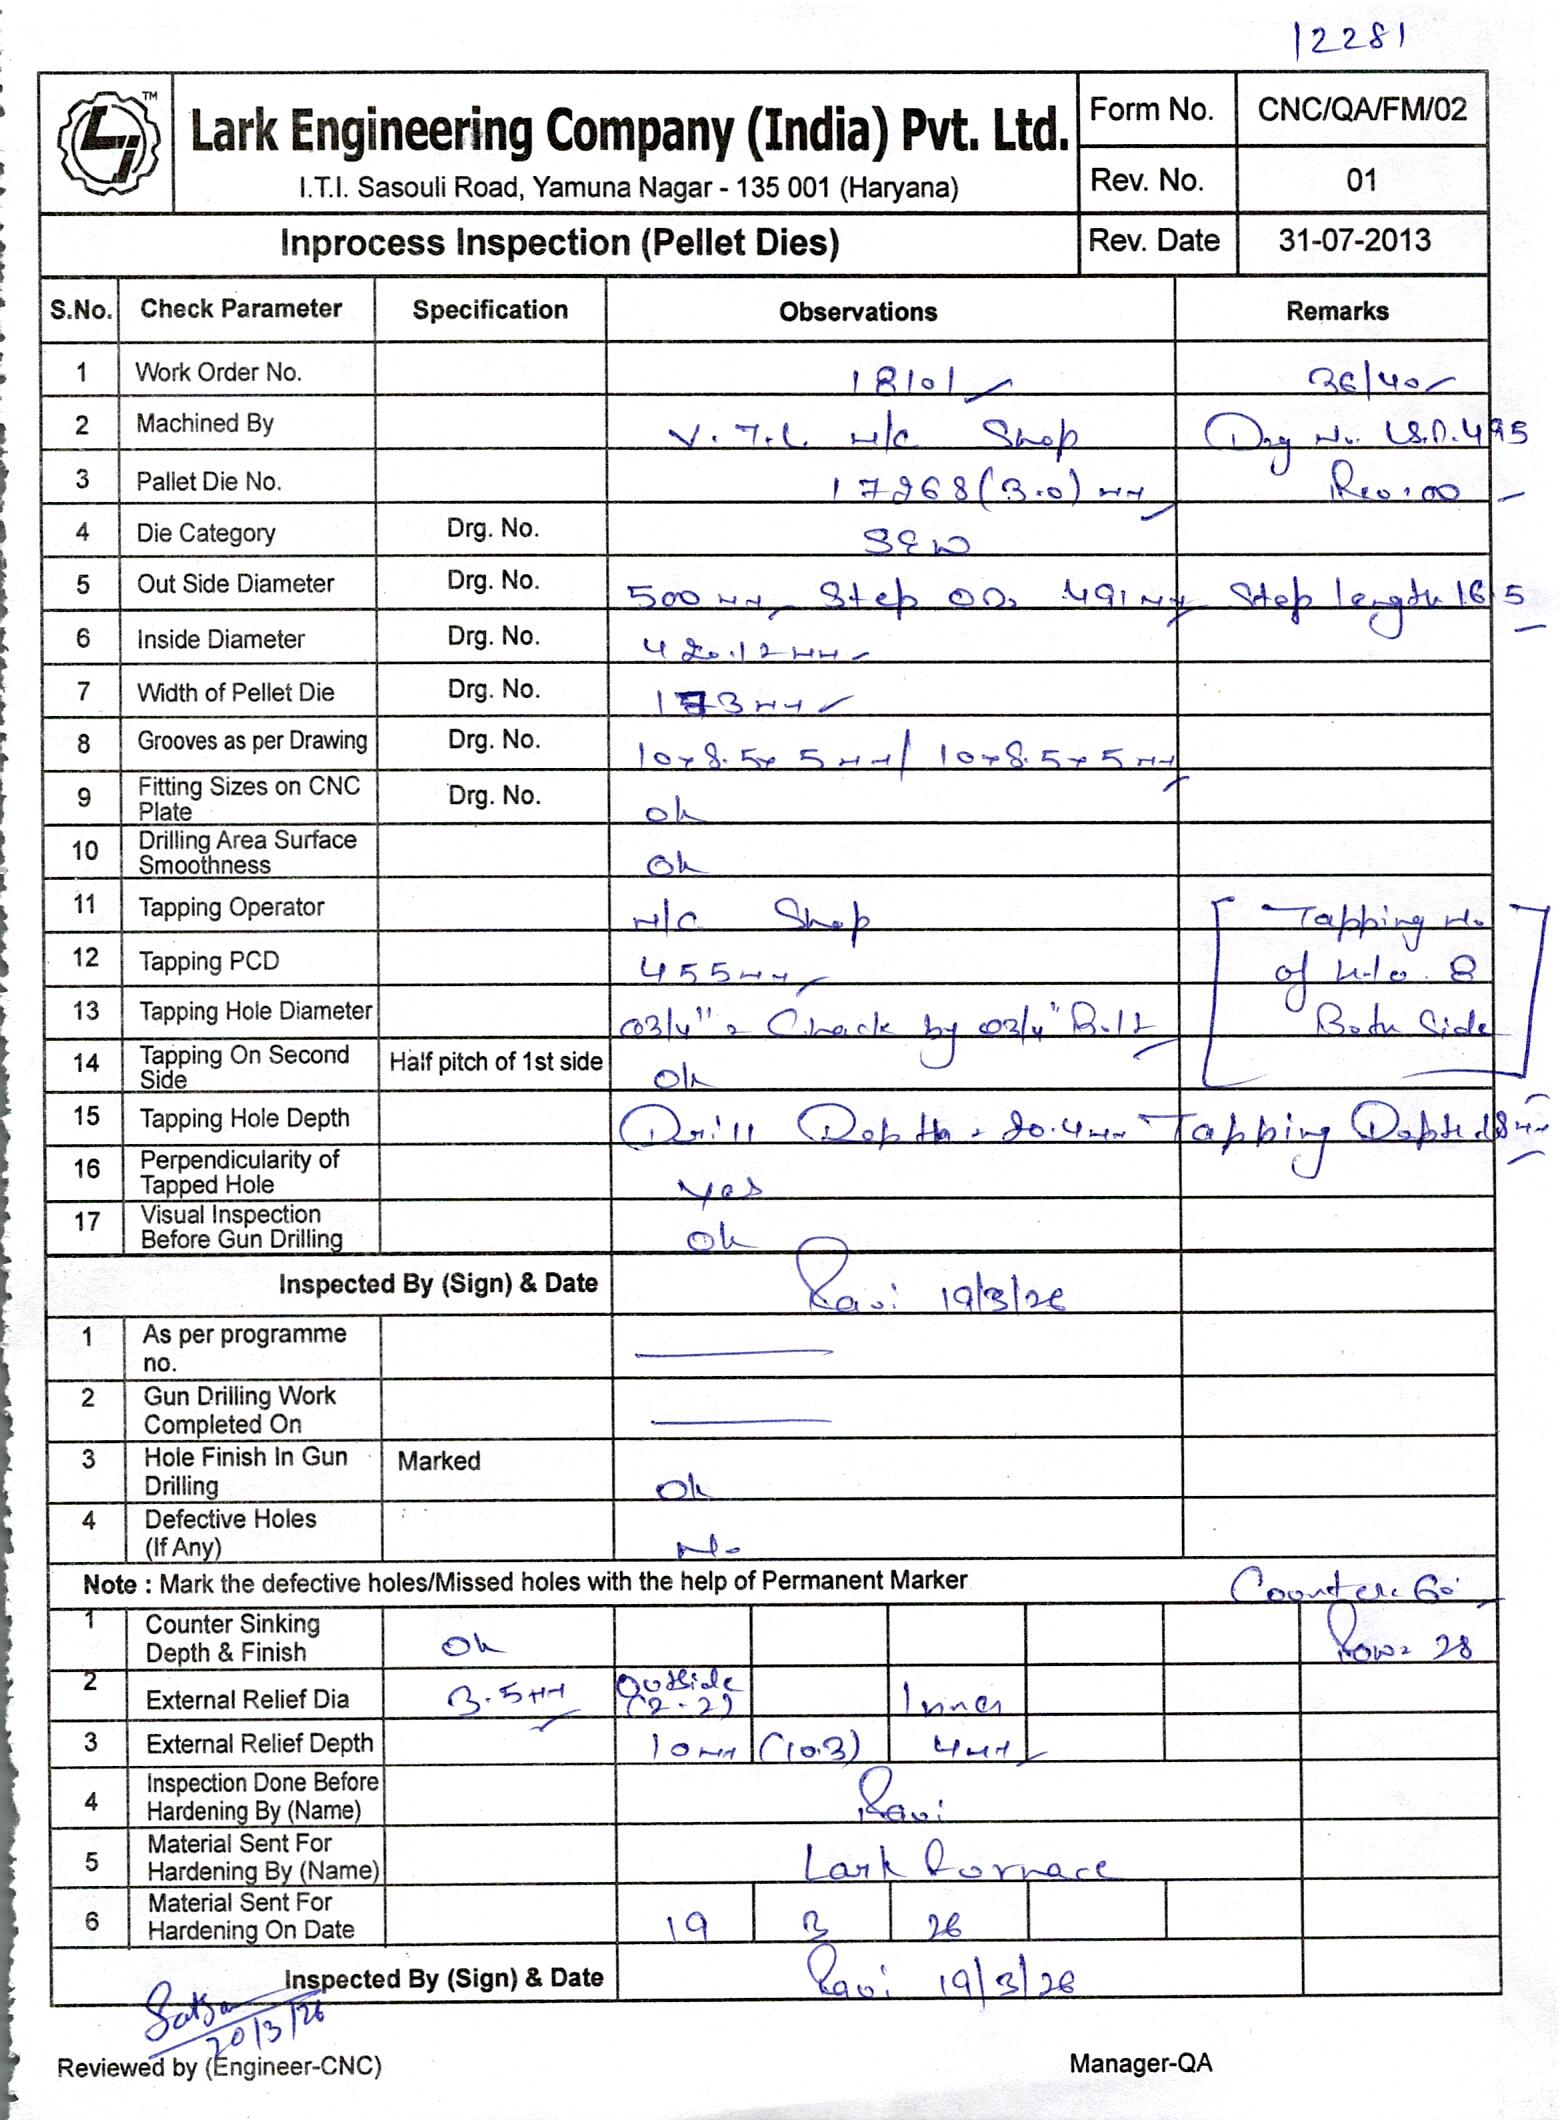 12281
Lark Engineering Company (India) Pvt. Ltd.
I.T.I. Sasouli Road, Yamuna Nagar - 135 001 (Haryana)
Form No. CNC/QA/FM/02
Rev. No. 01
Inprocess Inspection (Pellet Dies) Rev. Date 31-07-2013
S.No. Check Parameter Specification Observations Remarks
1 Work Order No. 18101 36/40
2 Machined By V.T.L. M/C Shop Drg No. LSD.495
3 Pallet Die No. 17268(3.0) mm Rev:00
4 Die Category Drg. No. SEW
5 Out Side Diameter Drg. No. 500mm Step OD. 491mm Step length 16.5
6 Inside Diameter Drg. No. 420.12mm
7 Width of Pellet Die Drg. No. 173mm
8 Grooves as per Drawing Drg. No. 10x8.5x5mm/10x8.5x5mm
9 Fitting Sizes on CNC Plate Drg. No. ok
10 Drilling Area Surface Smoothness ok
11 Tapping Operator M/C Shop Tapping No.
12 Tapping PCD 455mm of 8
13 Tapping Hole Diameter Ø3/4" = Chack by Ø3/4" Bolt Both Side
14 Tapping On Second Side Half pitch of 1st side ok
15 Tapping Hole Depth Drill Depth = 20.4mm Tapping Depth 18mm
16 Perpendicularity of Tapped Hole yes
17 Visual Inspection Before Gun Drilling ok
Inspected By (Sign) & Date Ravi 19/3/26
1 As per programme no.
2 Gun Drilling Work Completed On
3 Hole Finish In Gun Drilling Marked ok
4 Defective Holes (If Any) No
Note : Mark the defective holes/Missed holes with the help of Permanent Marker Counter: 60°
1 Counter Sinking Depth & Finish ok Row= 28
2 External Relief Dia 3.5mm Outside (2-2) Inner
3 External Relief Depth 10mm (10.3) 4mm
4 Inspection Done Before Hardening By (Name) Ravi
5 Material Sent For Hardening By (Name) Lark Furnace
6 Material Sent For Hardening On Date 19 3 26
Inspected By (Sign) & Date Ravi 19/3/26
20/3/26
Reviewed by (Engineer-CNC) Manager-QA